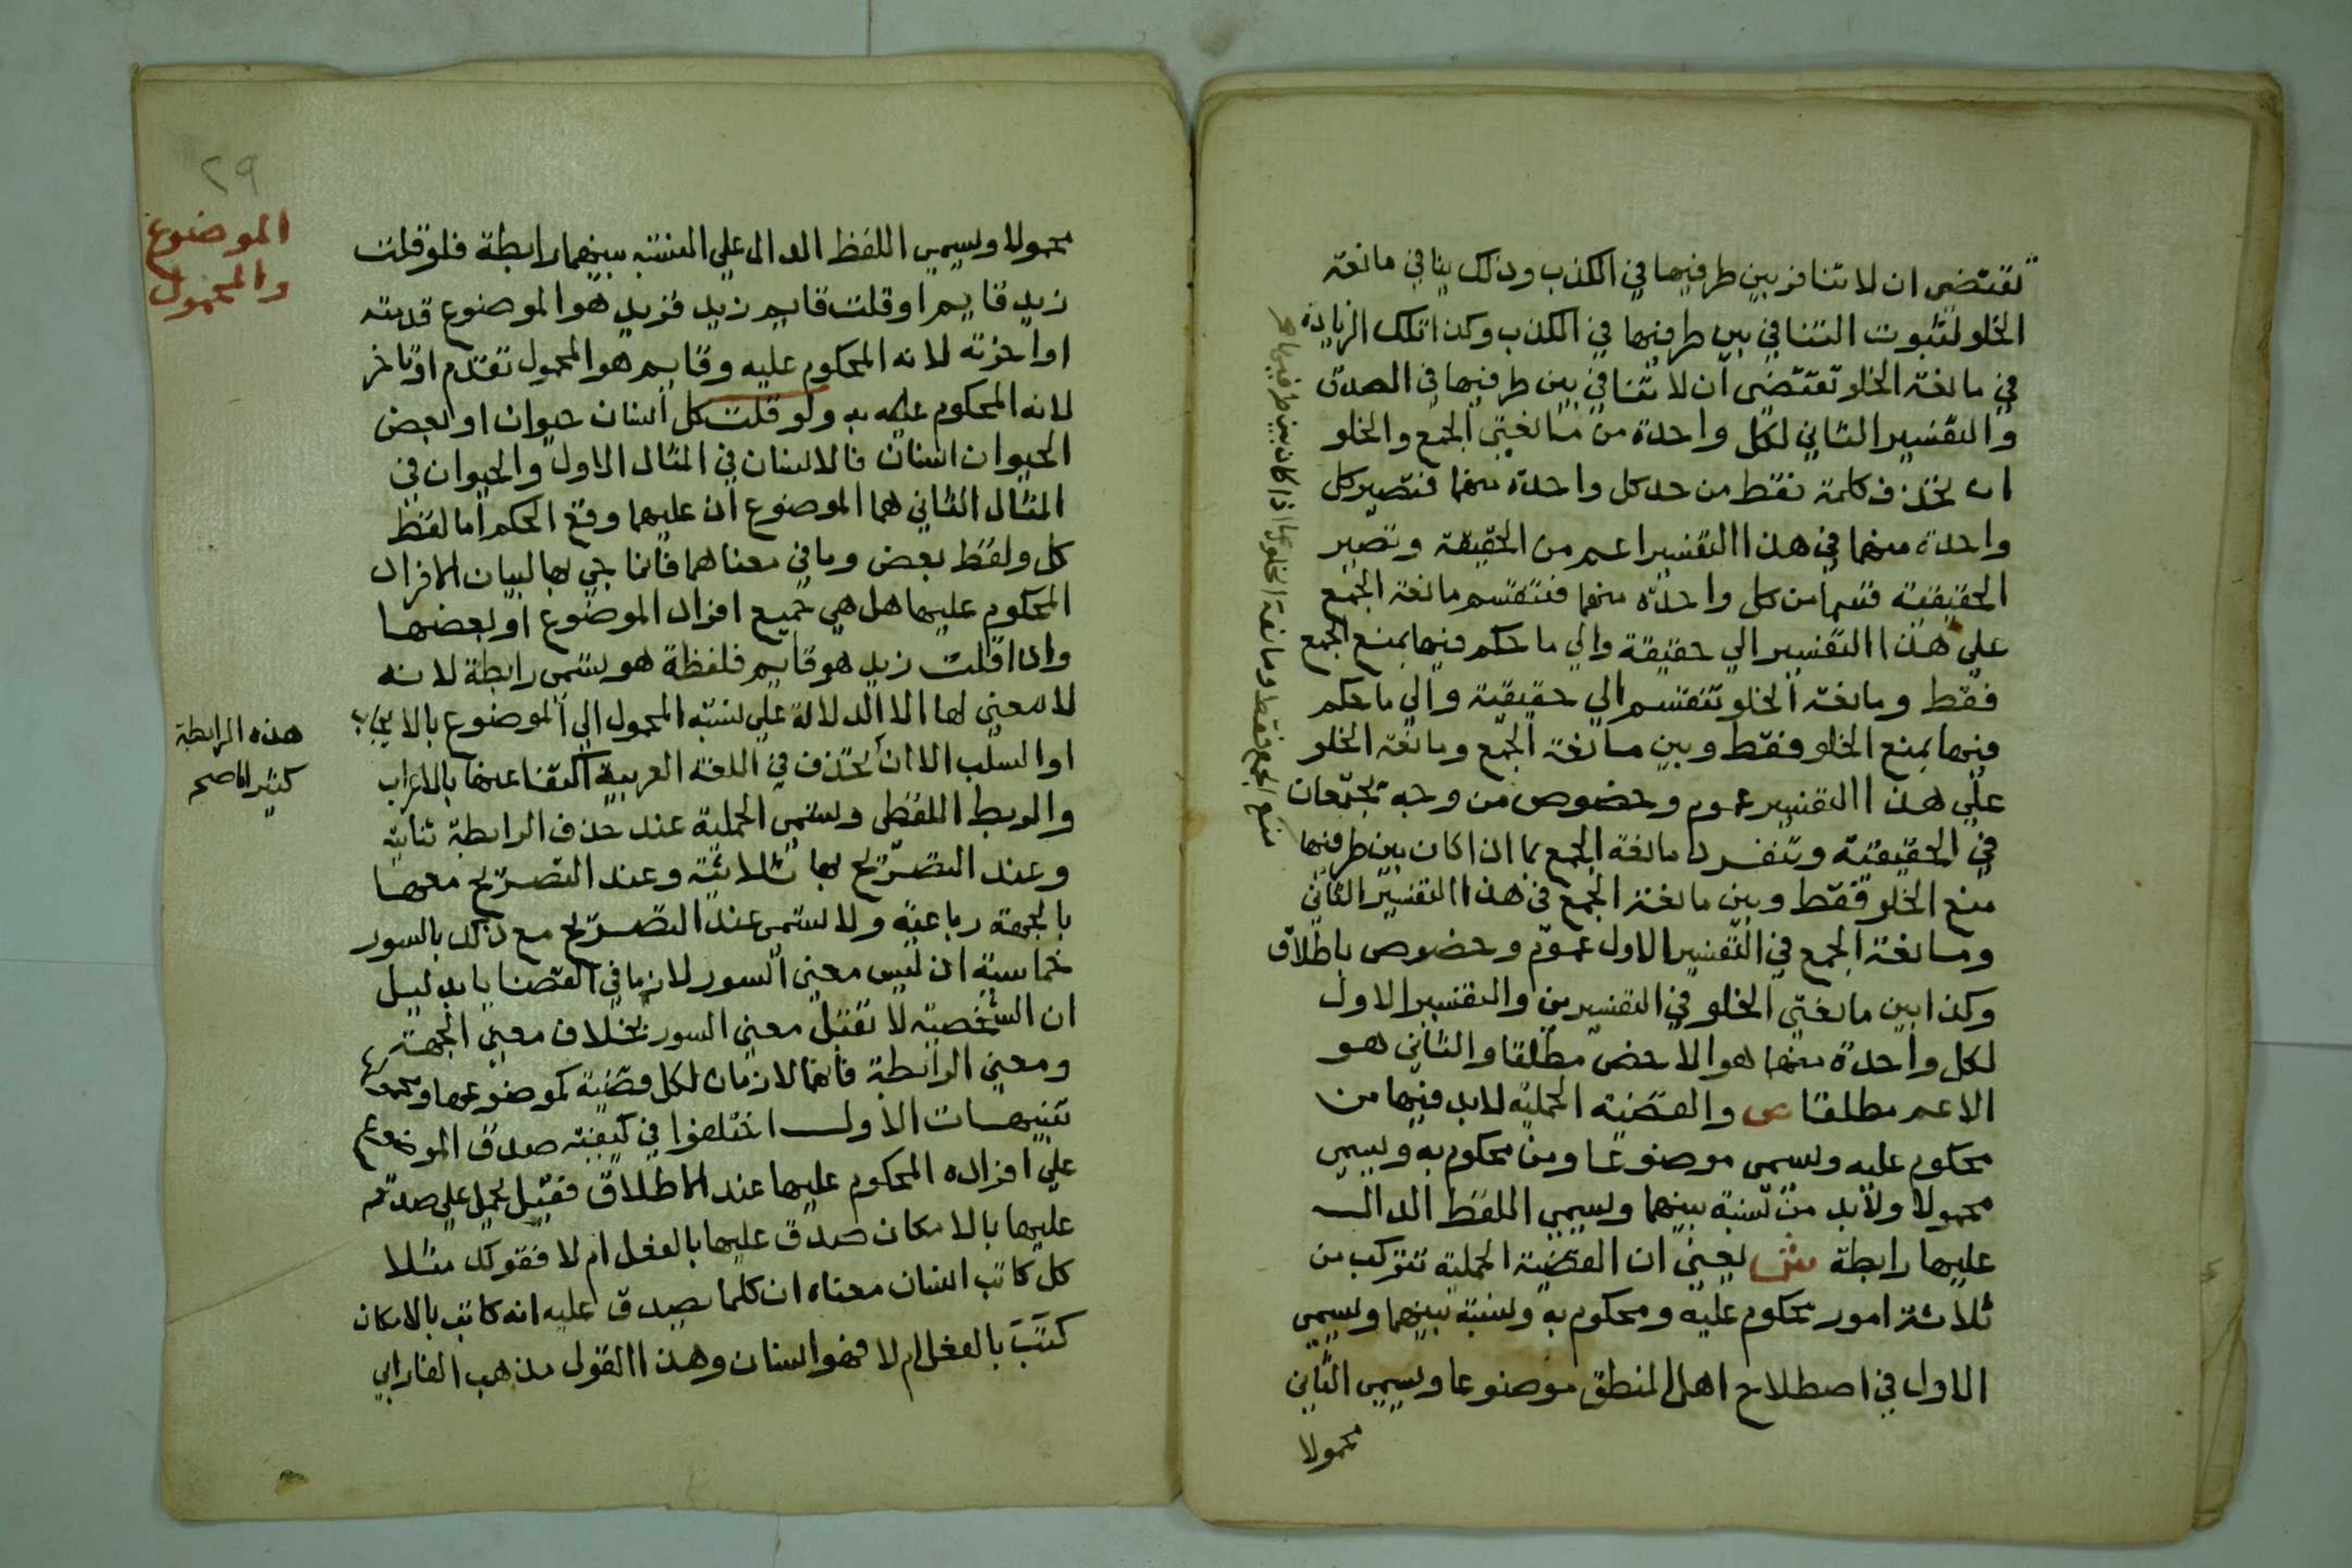 تقتضي ان لا تنافر بين طرفيها في الكذب وذلك ينافي مانعة
الخلو لثبوت التنافي بين طرفيها في الكذب وكذا تلك الزيادة
في مانعة الخلو تقتضي ان لا تنافي بين طرفيها في الصدق
والتفسير الثاني لكل واحدة من مانعتي الجمع والخلو
ان تحذف كلمة فقط من حد كل واحدة منهما فتصير كل
واحدة منهما في هذا التفسير اعم من الحقيقة وتصير
الحقيقية قسما من كل واحدة منهما فتنقسم مانعة الجمع
علي هذا التفسير الي حقيقة والي ما حكم فيها بمنع الجمع
فقط ومانعة الخلو تنقسم الي حقيقية والي ما حكم
فيها بمنع الخلو فقط وبين مانعة الجمع ومانعة الخلو
علي هذا التفسير عموم وخصوص من وجه تجتمعان
في الحقيقية وتنفرد مانعة الجمع بما اذا كان بين طرفيها
منع الخلو فقط وبين مانعة الجمع في هذا التفسير الثاني
ومانعة الجمع في التفسير الاول عموم وخصوص باطلاق
وكذا بين مانعتي الخلو في التفسيرين والتفسير الاول
لكل واحدة منهما هو الاخص مطلقا والثاني هو
الاعم مطلقا ص والقضية الحملية لا بد فيها من
محكوم عليه ويسمى موضوعا ومن محكوم به ويسمي
محمولا ولا بد من نسبة بينهما ويسمي اللفظ الدال
عليها رابطة ش يعني ان القضية الحملية تتركب من
ثلاثة امور محكوم عليه ومحكوم به ونسبة بينهما ويسمي
الاول في اصطلاح اهل المنطق موضوعا ويسمي الثاني
محمولا
منع الجمع فقط ومانعة الخلو بما اذا كان بين طرفيها
٢٩
الموضوع
والمحمول
محمولا ويسمي اللفظ الدال علي النسبة بينهما رابطة فلو قلت
زيد قايم او قلت قايم زيد فزيد هو الموضوع قدمته
او اخرته لانه المحكوم عليه وقايم هو المحمول تقدم او تاخر
لانه المحكوم عليه به ولو قلت كل انسان حيوان او بعض
الحيوان انسان فالانسان في المثال الاول والحيوان في
المثال الثاني هما الموضوع اذ عليهما وقع الحكم اما لفظ
كل ولفظ بعض وما في معناهما فانما جي بها لبيان الافراد
المحكوم عليها هل هي جميع افراد الموضوع او بعضها
واذا قلت زيد هو قايم فلفظة هو يسمى رابطة لانه
لا معني لها الا الدلالة علي نسبة المحمول الي الموضوع بالايجاب
او السلب الا ان تحذف في اللغة العربية اكتفا عنها بالاعراب
والربط اللفظي وتسمي الحملية عند حذف الرابطة ثنائية
وعند التصريح بها ثلاثية وعند التصريح معها
بالجهة رباعية ولا تسمى عند التصريح مع ذلك بالسور
خماسية اذ ليس معني السور لازما في القضايا بدليل
ان الشخصية لا تقبل معني السور بخلاف معني الجهة
ومعني الرابطة فانهما لازمان لكل قضية كموضوعها ومحمولها
تنبيهات الاول اختلفوا في كيفية صدق الموضوع
علي افراده المحكوم عليها عند الاطلاق فقيل يحمل علي صدقه
عليها بالامكان صدق عليها بالفعل ام لا فقولك مثلا
كل كاتب انسان معناه ان كلما يصدق عليه انه كاتب بالامكان
كَتَبَ بالفعل ام لا فهو انسان وهذا القول مذهب الفارابي
هذه الرابطة
كثيرا